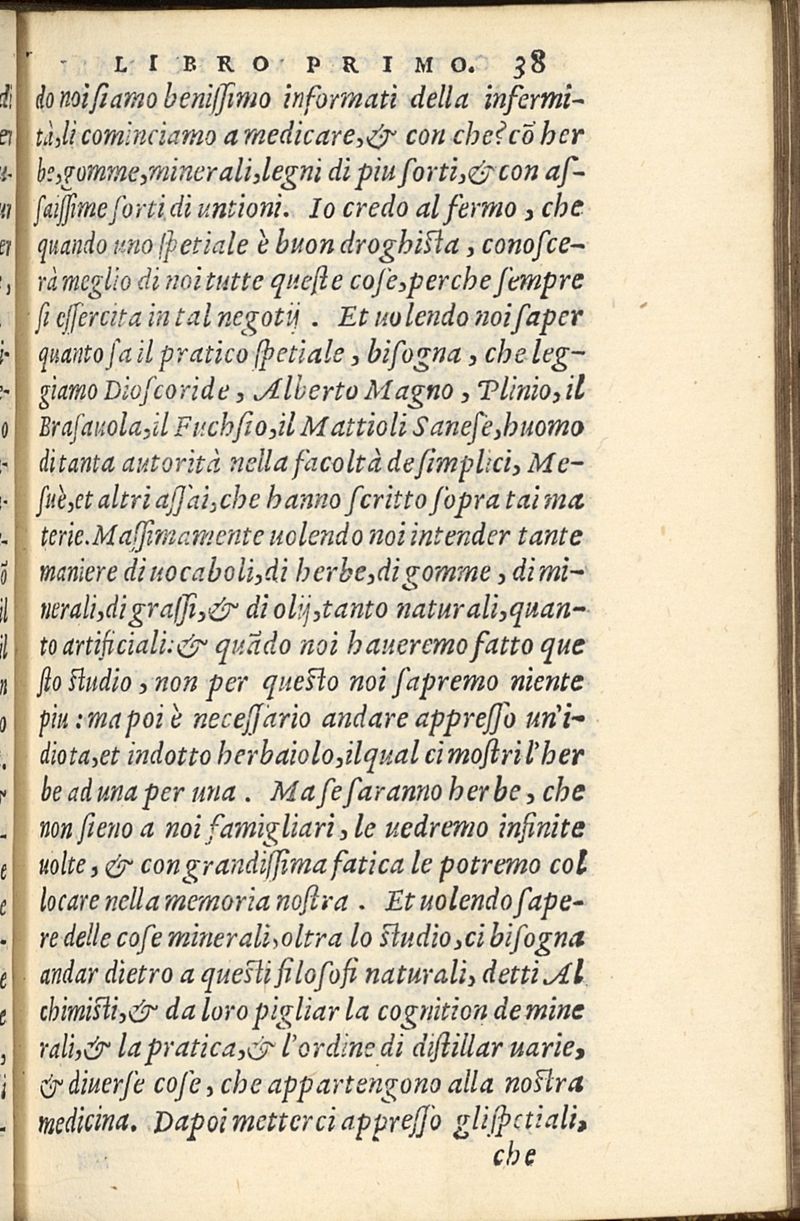 LIBRO PRIMO. 38
do noi ſiamo beniſſimo informati della infermi-
tà, li cominciamo a medicare, & con che? cõ her
be, gomme, minerali, legni di piu ſorti, & con aſ-
ſaiſſime ſorti di untioni. Io credo al fermo, che
quando uno ſpetiale è buon droghiſta, conoſce-
rà meglio di noi tutte queſte coſe, perche ſempre
ſi eſſercita in tal negotij. Et uolendo noi ſaper
quanto ſa il pratico ſpetiale, biſogna, che leg-
giamo Dioſcoride, Alberto Magno, Plinio, il
Braſauola, il Fuchſio, il Mattioli Saneſe, huomo
di tanta autorità nella facoltà de ſimplici, Me-
ſuè, et altri aſſai, che hanno ſcritto ſopra tai ma
terie. Maſſimamente uolendo noi intender tante
maniere di uocaboli, di herbe, di gomme, di mi-
nerali, di graſſi, & di olij, tanto naturali, quan-
to artificiali: & quãdo noi haueremo fatto que
ſto ſtudio, non per queſto noi ſapremo niente
piu: ma poi è neceſſario andare appreſſo un'i-
diota, et indotto herbaiolo, ilqual ci moſtri l'her
be ad una per una. Ma ſe ſaranno herbe, che
non ſieno a noi famigliari, le uedremo infinite
uolte, & con grandiſſima fatica le potremo col
locare nella memoria noſtra. Et uolendo ſape-
re delle coſe minerali, oltra lo ſtudio, ci biſogna
andar dietro a queſti filoſofi naturali, detti Al
chimiſti, & da loro pigliar la cognition de mine
rali, & la pratica, & l'ordine di diſtillar uarie,
& diuerſe coſe, che appartengono alla noſtra
medicina. Dapoi metterci appreſſo gli ſpetiali,
che